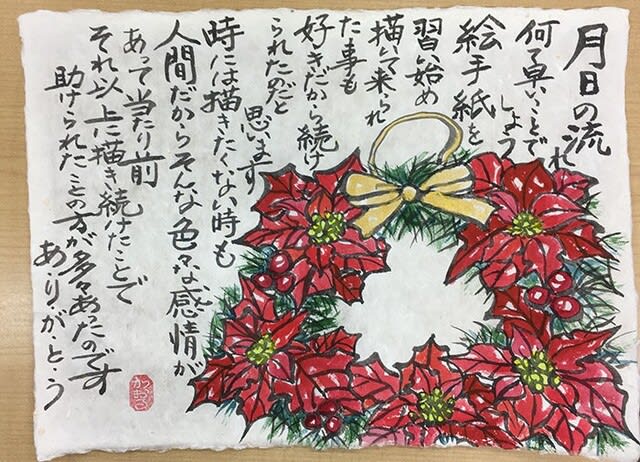 月日の流れ
何て早いことで
しょう
絵手紙を
習い始め
描いて来られ
た事も
好きだから続け
られたのだと
思います
時には描きたくない時も
人間だからそんな色々な感情が
あって当たり前
それ以上に描き続けたことで
助けられたことの方が多々あったのです
ありがとう